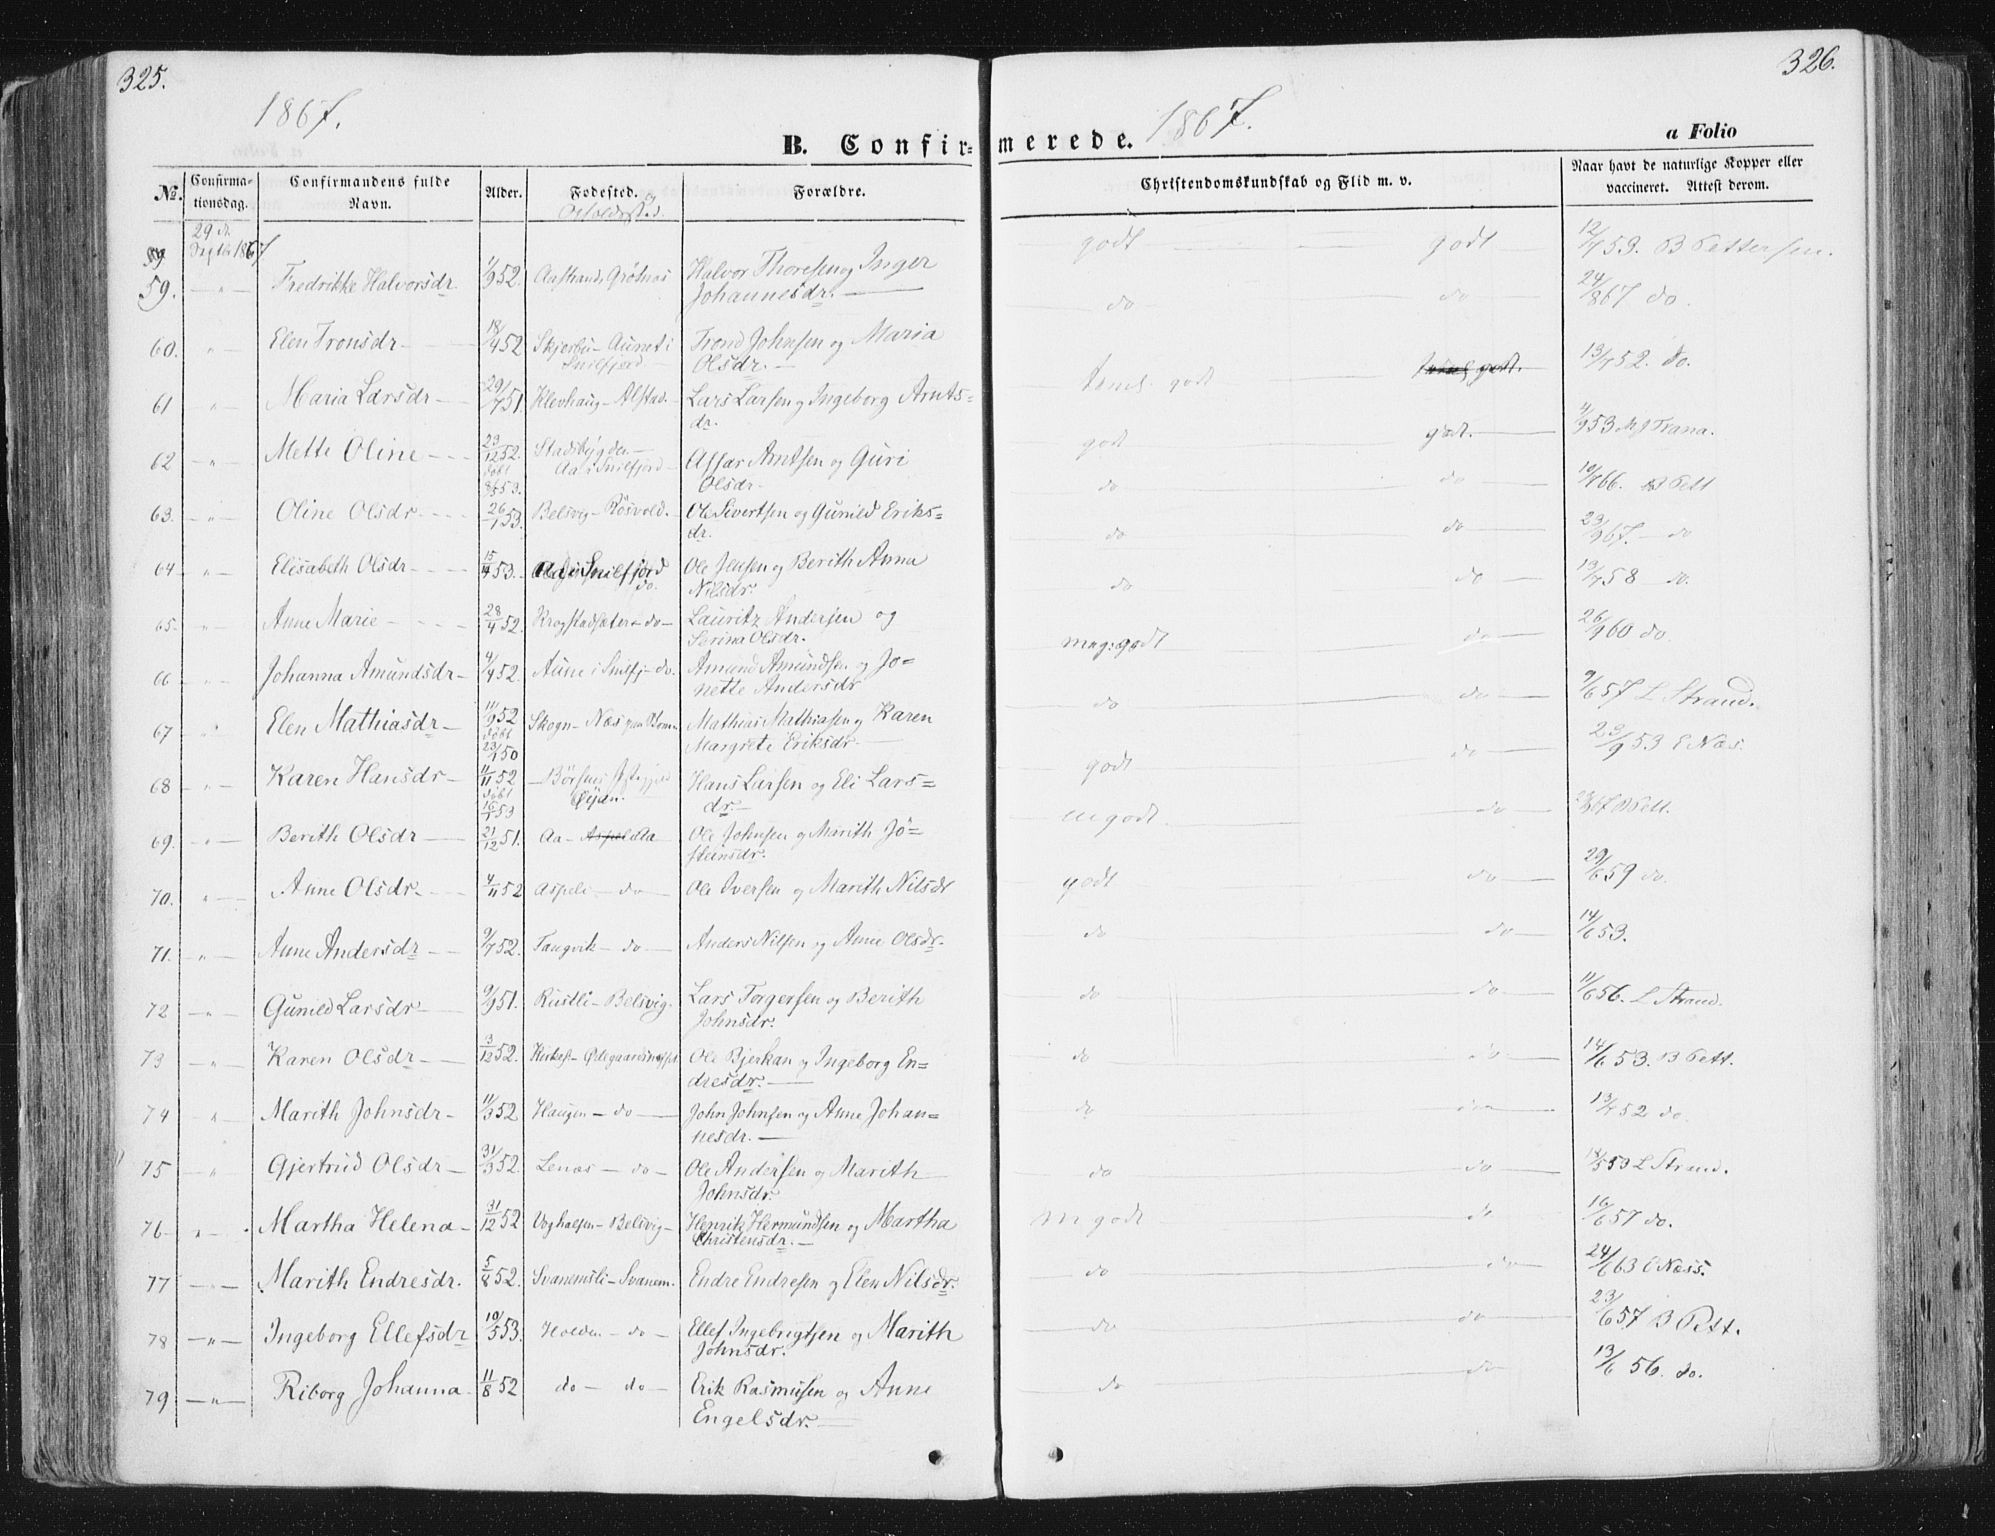 325.
326.
1867.
1867.
B. Confir-
merede.
a Folio
No.
Confirma-
tionsdag.
Confirmandens fulde
Navn.
Alder.
Fødested.
Forældre.
Christendomskundskab og Flid m. v.
Naar havt de naturlige Kopper eller
vaccineret. Attest derom.
29 de
Septbr 1867
59. — " — Fredrikke Halvorsdr 1/9 52. Aastrand, Halvor Thoresen og Inger
Johannesdr. —
godt — godt — 12/7 53. B Pettersen.
60. " — Elen Tronsdr — 18/4 52 Skjorbu – Aunet i Trond Johnsen og Maria
Snilfjord — Olsdr. —
do — do — 24/8 67 do.
61 " — Maria Larsdr — 29/7 51. Klevhaug – Alstad. Lars Larsen og Ingeborg Arnts=
dr.
temel. godt — 13/7 52. do.
62 " — Mette Oline — 23/12 52. Stadsbygden — Arntsen og Guri
døbt Aa i Snilfjord — Olsdr.
8/5 53.
godt — godt. — 4/9 53 Trana.
63. " — Oline Olsdr — 26/1 53. Belsvig – Røsvold. Ole Sivertsen og Gunild Eriks=
dr.
do — do — 66. B Pett
64 " — Elisabeth Olsdr — 15/4 53. Aa i Snilfjord Ole Jensen og Berith Anna
do. Nilsdr.
do — do — 23/9 67. — do
65. " — Anne Marie — 28/4 52. Krogstadsæter – do — Lauritz Andersen og
Serina Olsdr.
do — do — 13/7 58 — do.
66 " — Johanna Amundsdr — 4/4 52. Aune i Snilfj – do. Amund Amundsen og Jo=
nette Andersdr
meg. godt — do — 26/9 60 do.
67 " — Elen Mathiasdr — 11/9 52 Skogn – Næs Mathias Mathiasen og Karen
døbt Margrete Eriksdr. —
do — do — 9/6 57 L Strand.
68 " — Karen Hansdr — 11/11 52 – Børsen Hans Larsen og Eli Lars=
døbt Øijan. dr —
16/1 53
godt — do — 23/9 53 E Næs.
69. " — Berith Olsdr — 21/12 51. Aa – Aa Ole Johnsen og Marith Jo=
steinsdr.
m godt — do — 67 B Pett.
70. " — Anne Olsdr — 4/11 52 Aspeli – do — Ole Iversen og Marith Nilsdr
godt — do — 29/6 59 do.
71. " — Anne Andersdr — 9/7 52. Tangvik – do — Anders Nilsen og Anne Olsdr.
do — do — 14/6 53.
72 " — Gunild Larsdr — 9/9 51. Rustli – Belsvig. Lars Torgersen og Berith
Johnsdr.
do — do — 11/6 56. L Strand.
73 " — Karen Olsdr — 3/12 52. Kirkest – Ole Bjerkan og Ingeborg En=
dresdr. —
do — do — 14/6 53. B Pett.
74 " — Marith Johnsdr — 11/3 52 Haugen – do — John Johnsen og Anne Johan=
nesdr. —
do — do — 13/7 52 do.
75 " — Gjertrud Olsdr — 31/3 52. Lenæs — do — Ole Andersen og Marith
Johnsdr.
do — do — 53 L Strand.
76 " — Martha Helena — 31/12 52 Voghalsen – Belsvig – Henrik Hermundsen og Martha
Christensdr. —
m godt — do — 16/6 57 do.
77 — " — Marith Endresdr. 5/8 52. Svanemsli – Svanem. Endre Endresen og Elen Nilsdr.
do — do — 24/6 63 O Næss.
78 — " — Ingeborg Ellefsdr 10/5 53. Holden – do — Ellef Ingebrigtsen og Marith
Johnsdr.
do — do — 23/6 57 B Pett.
79 — " — Riborg Johanna 11/8 52 do — do — Erik Rasmusen og Anne
Engelsdr. —
do — do — 13/6 56. do.